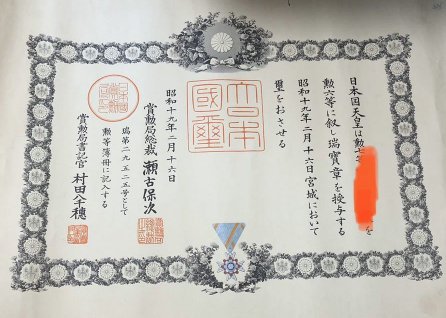 日本国天皇は勲
を
勲六等に叙し瑞寶章を授与する
昭和十九年二月十六日宮城において
璽をおさせる
大日本
國璽
昭和十九年二月十六日
賞勲局総裁 瀬古保次
瑞第二九五二五号として
勲等簿冊に記入する
賞勲局書記官 村田八千穂